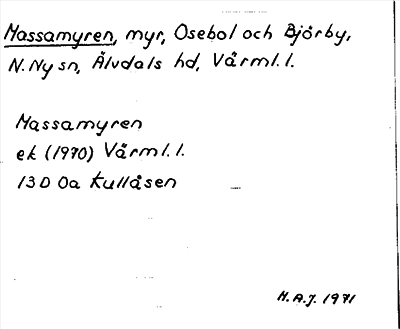 Massamyren, myr, Osebol och Björby,
N. Ny sn, Älvdals hd, Värml. l.
Massamyren
ek (1970) Värml. l.
13D 0a Kullåsen
H.A.J. 1971